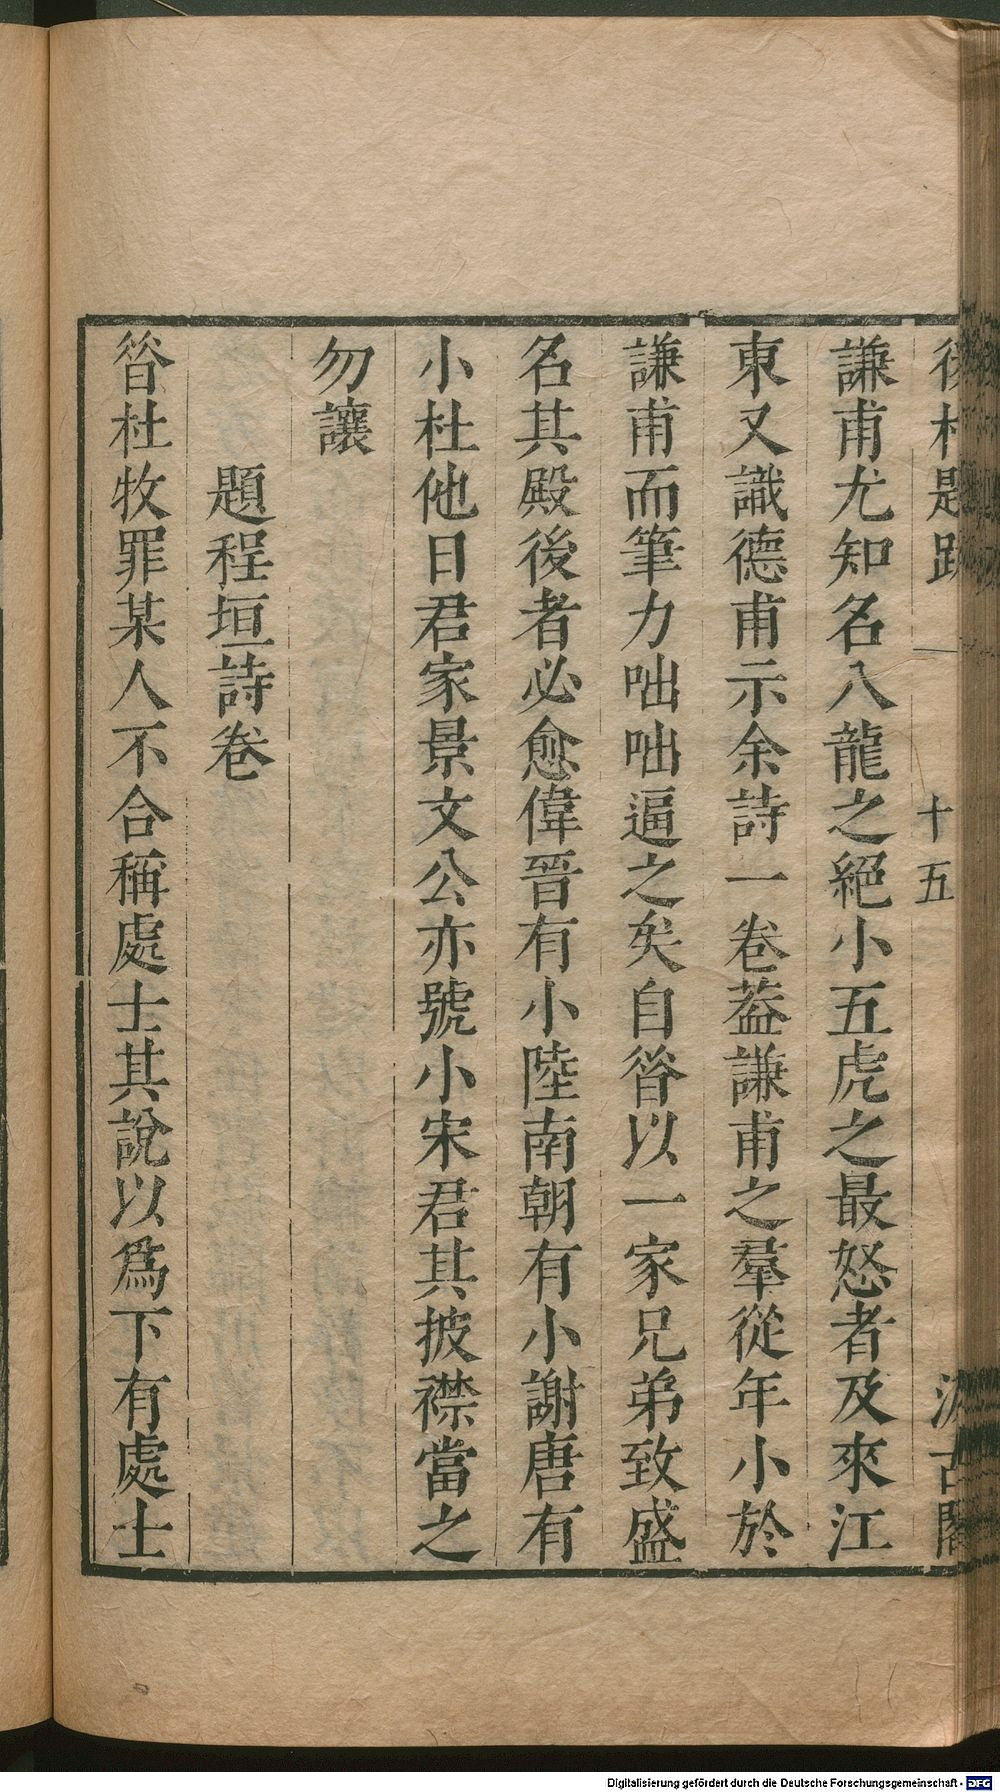 後村題跋 一 十五 汲古閣
謙甫尤知名八龍之絕小五虎之最怒者及來江
東又識德甫示余詩一卷葢謙甫之羣從年小於
謙甫而筆力咄咄逼之矣自昝以一家兄弟致盛
名其殿後者必愈偉晉有小陸南朝有小謝唐有
小杜他日君家景文公亦號小宋君其披襟當之
勿讓
題程垣詩卷
昝杜牧罪某人不合稱處士其說以爲下有處士
Digitalisierung gefördert durch die Deutsche Forschungsgemeinschaft - DFG